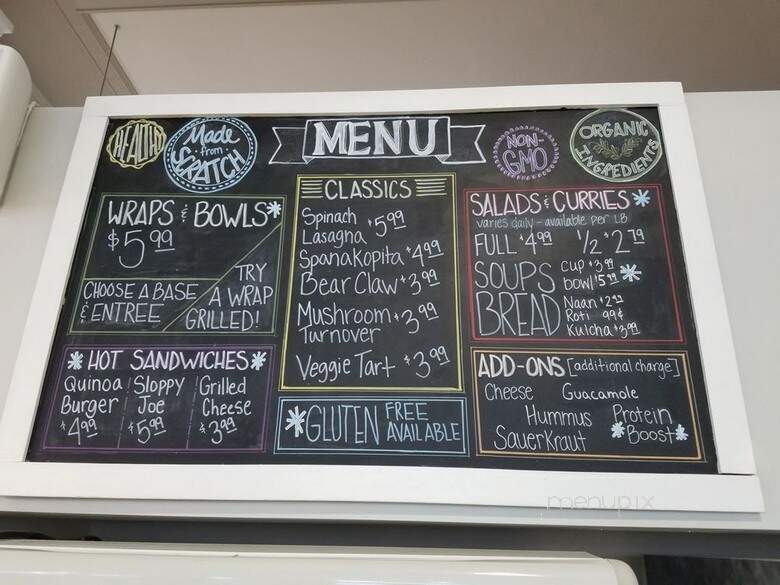 HEALTHY
Made
from
SCRATCH
MENU
NON-
GMO
ORGANIC
INGREDIENTS
WRAPS & BOWLS*
$5.99
CHOOSE A BASE
& ENTREE
TRY
A WRAP
GRILLED!
* HOT SANDWICHES *
Quinoa
Burger
$4.99
Sloppy
Joe
$5.99
Grilled
Cheese
$3.99
CLASSICS
Spinach
Lasagna $5.99
Spanakopita $4.99
Bear Claw $3.99
Mushroom
Turnover $3.99
Veggie Tart $3.99
*GLUTEN FREE
AVAILABLE
SALADS & CURRIES *
varies daily - available per LB
FULL $4.99 1/2 $2.79
SOUPS
cup $3.99
bowl $5.99 *
BREAD
Naan $2.99
Roti 99¢
Kulcha $3.99
ADD-ONS [additional charge]
Cheese Guacamole
Hummus Protein
Sauerkraut *Boost*
menupix